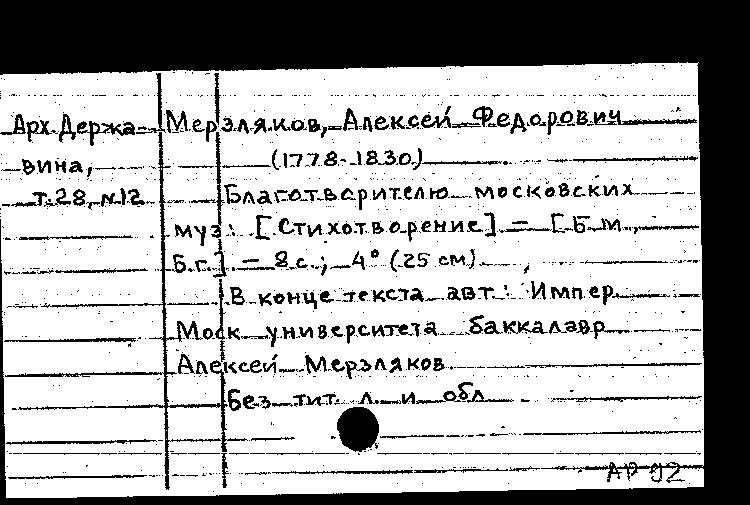 Арх. Держа- Мерзляков, Алексей Федорович
вина, (1778-1830)
т.28, №12 Благотворителю московских
муз: [Стихотворение] – [Б.м.,
Б.г.] – 8 с.; 4° (25 см)
В конце текста авт.: Импер.
Моск университета баккалавр
Алексей Мерзляков.
Без тит. л. и обл.
АР 92